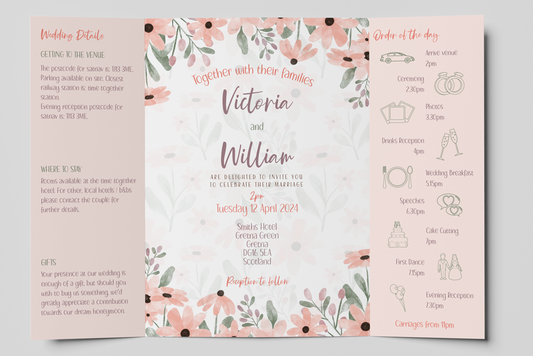 Wedding Details
GETTING TO THE VENUE
The postcode for satnav is TM3 3ME.
Parking available on site. Closest
railway station is time together
station.
Evening reception postcode for
satnav is TM3 3ME.
WHERE TO STAY
Rooms available at the time together
hotel. For other, local hotels / b&bs
please contact the couple for
further details.
GIFTS
Your presence at our wedding is
enough of a gift, but should you
wish to buy us something, we'd
greatly appreciate a contribution
towards our dream honeymoon.
Together with their families
Victoria
and
William
ARE DELIGHTED TO INVITE YOU
TO CELEBRATE THEIR MARRIAGE
2pm
Tuesday 12 April 2024
Smiths Hotel
Gretna Green
Gretna
DG16 5EA
Scotland
Reception to follow
Order of the day
Arrive venue
2pm
Ceremony
2.30pm
Photos
3.30pm
Drinks Reception
4pm
Wedding Breakfast
5.15pm
Speeches
6.30pm
Cake Cutting
7pm
First Dance
7.15pm
Evening Reception
7.30pm
Carriages from 11pm